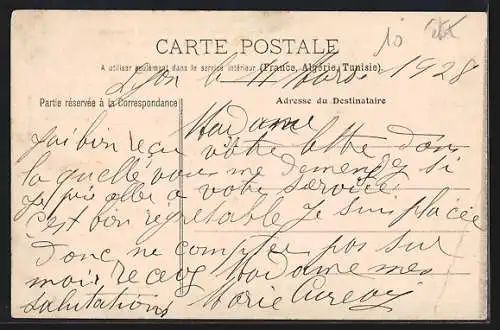 10
CARTE POSTALE
A utiliser seulement dans le service intérieur (France, Algérie, Tunisie).
Lyon le 4 Mars 1928
Partie réservée à la Correspondance
Adresse du Destinataire
Madame
J'ai bien reçu votre lettre dans
la quelle vous me demendez si
je puis aller a votre service
c'est bien regretable je suis placée
Donc ne compter pas sur
moi recevez Madame mes
salutations Marie